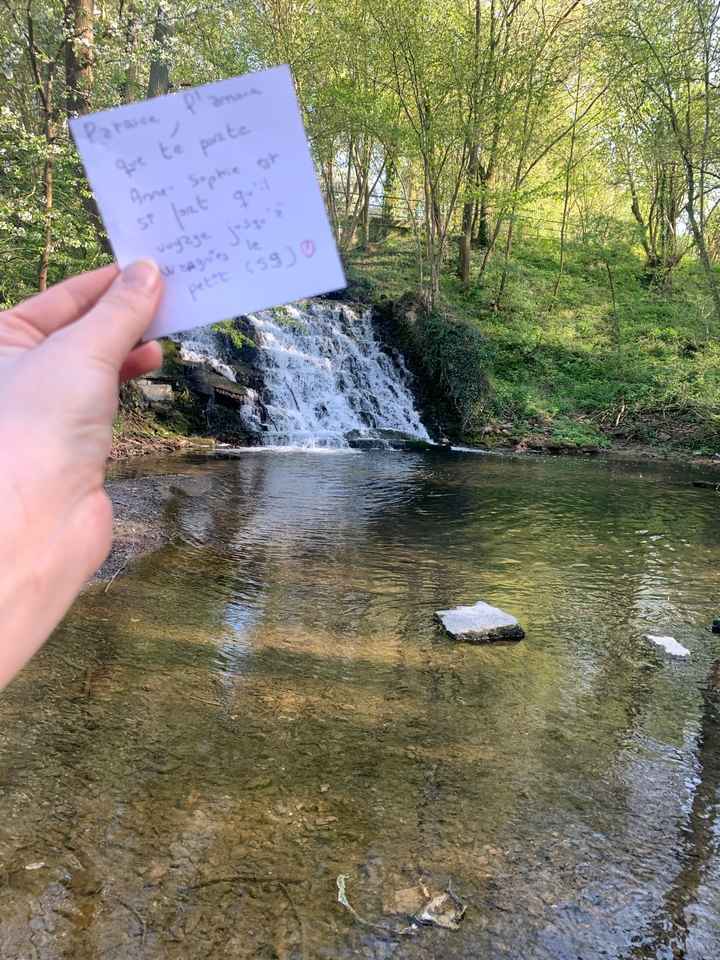 Patricia, l'amour
que te porte
Anne-Sophie est
si fort qu'il
voyage jusqu'à
Wargnies le
petit (59)